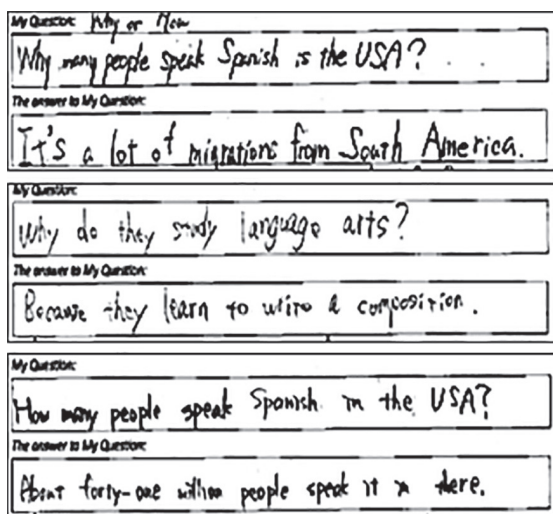 My Question: Why or How
Why many people speak Spanish is the USA?
The answer to My Question:
It's a lot of migrations from South America.
My Question:
Why do they study language arts?
The answer to My Question:
Because they learn to write a composition.
My Question:
How many people speak Spanish in the USA?
The answer to My Question:
About forty-one million people speak it in there.